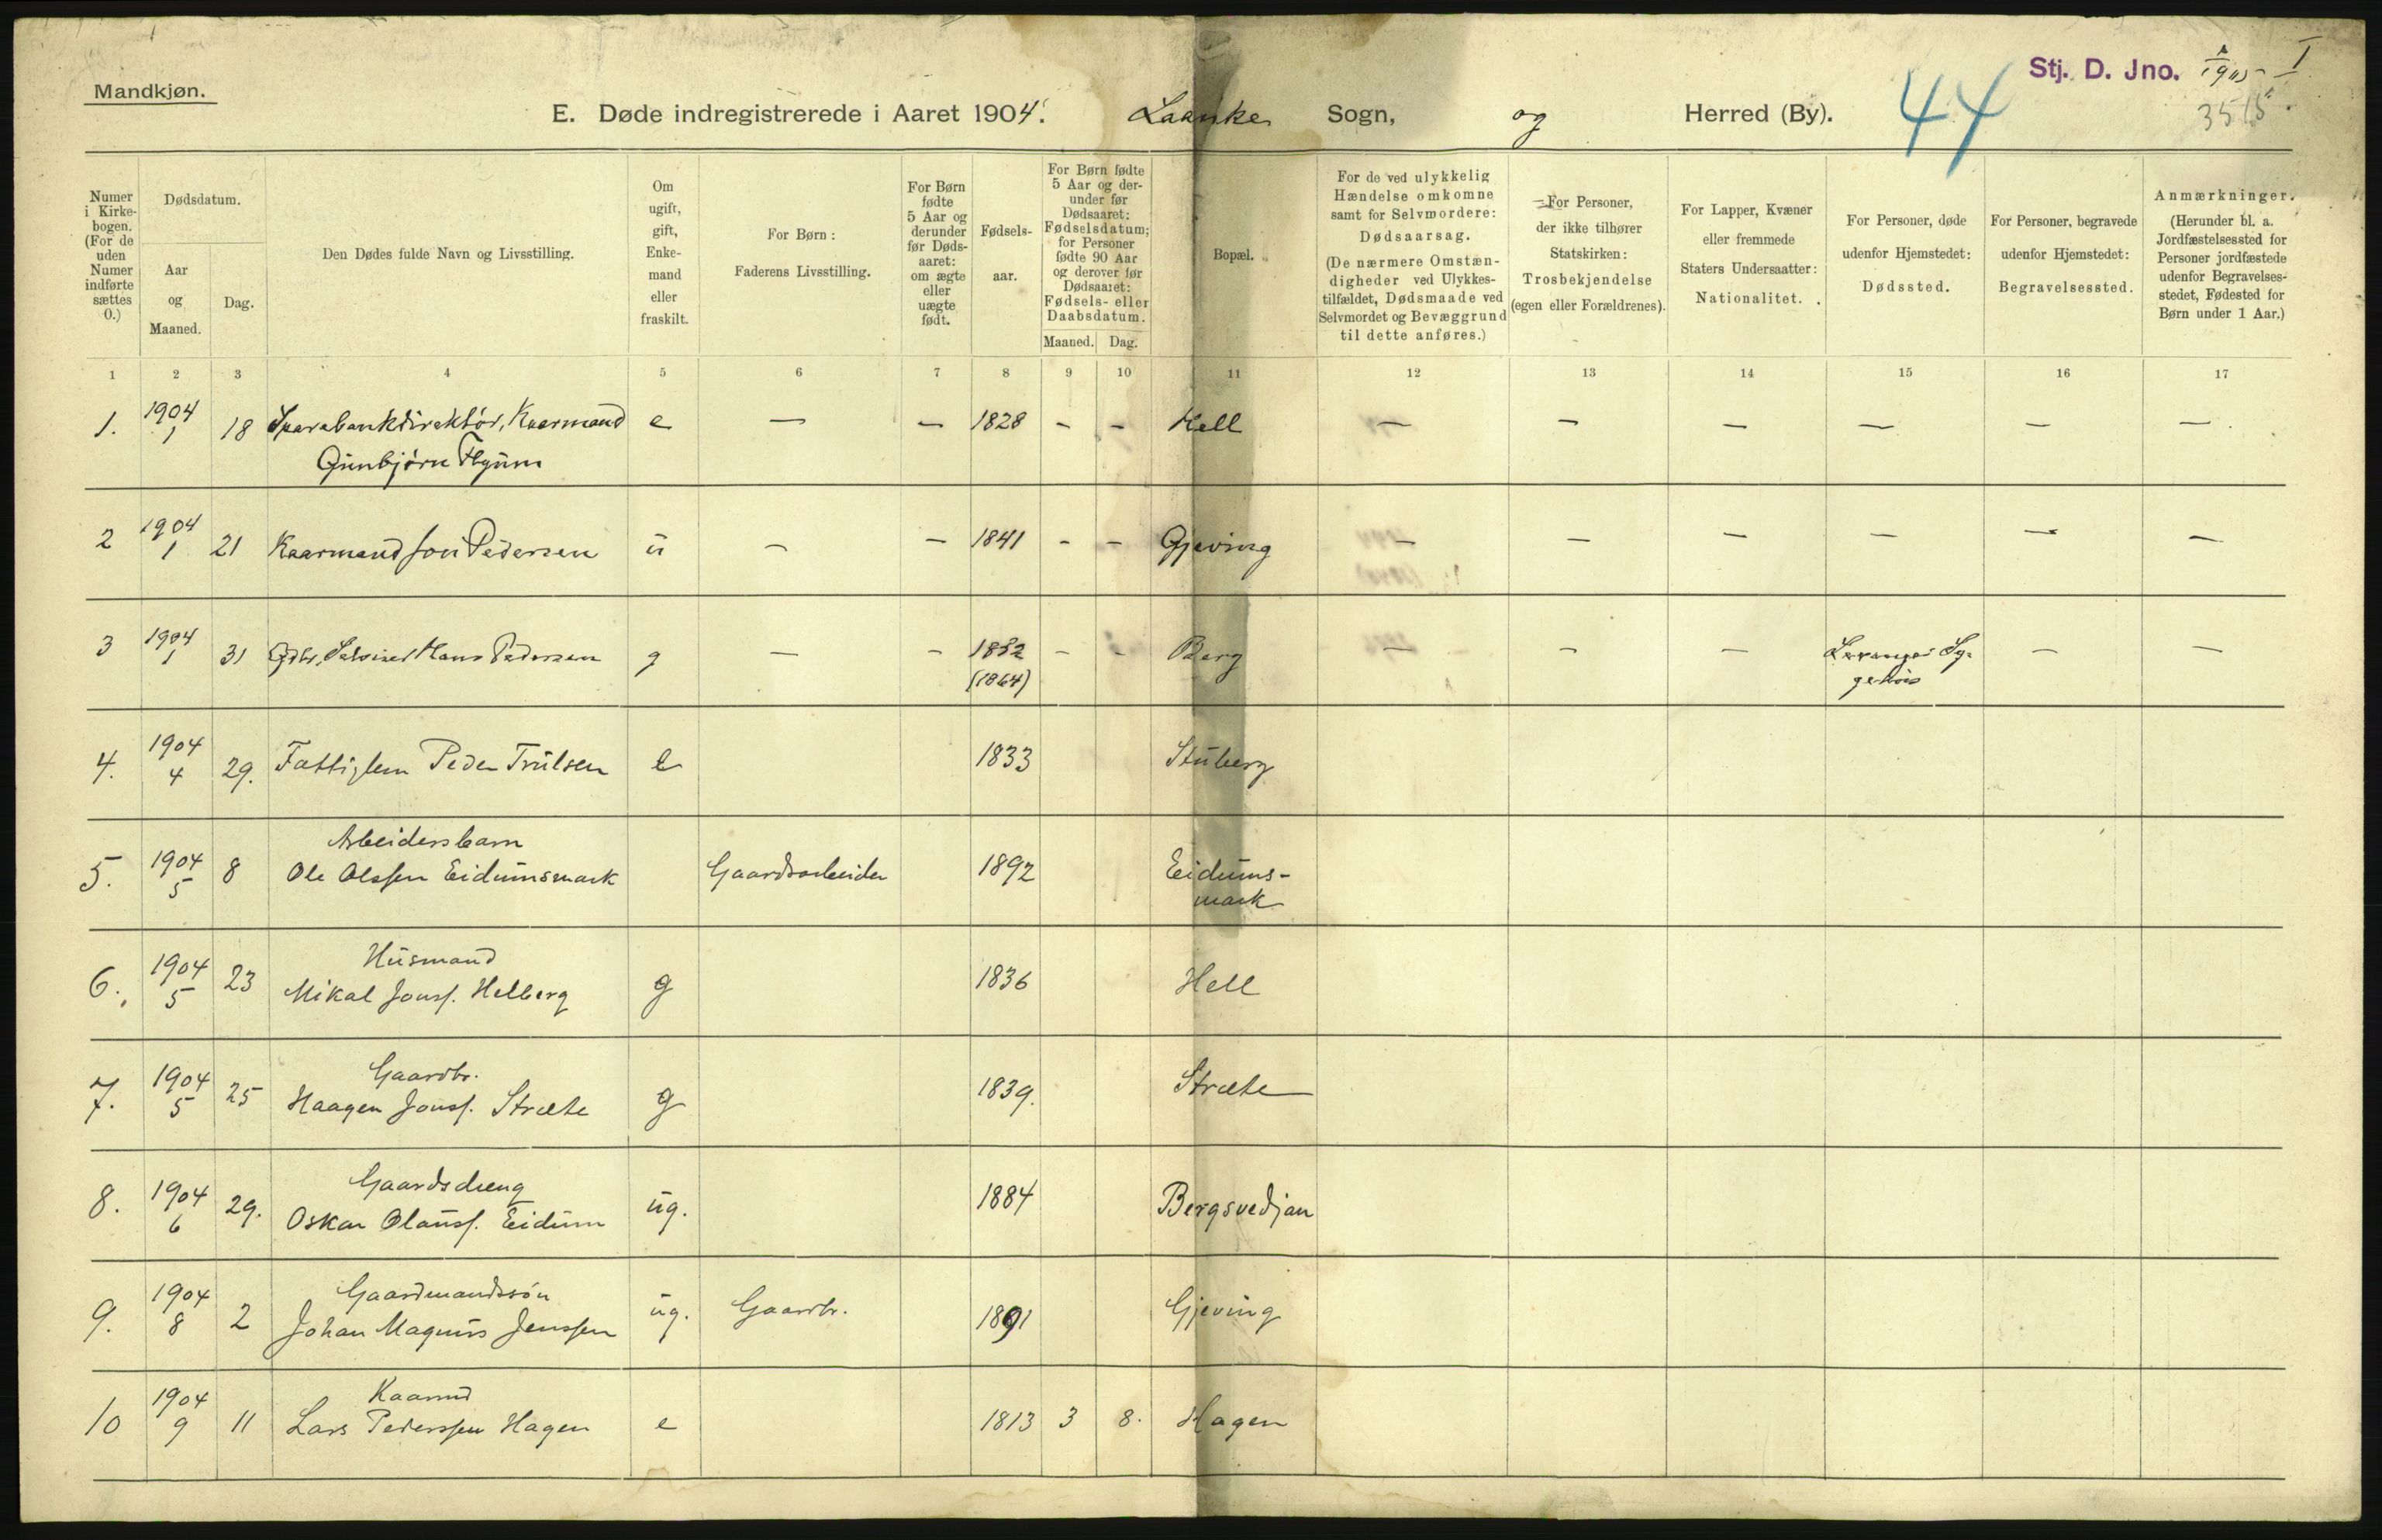 Mandkjøn.
Stj. D. Jno. 1905 I
3515
44
E. Døde indregistrerede i Aaret 1904. Laanke Sogn, og Herred (By).
Numer i Kirkebogen. (For de uden Numer indførte sættes 0.)
Dødsdatum.
Aar og Maaned.
Dag.
Den Dødes fulde Navn og Livsstilling.
Om ugift, gift, Enkemand eller fraskilt.
For Børn: Faderens Livsstilling.
For Børn fødte 5 Aar og derunder før Dødsaaret: om ægte eller uægte født.
Fødselsaar.
For Børn fødte 5 Aar og derunder før Dødsaaret: Fødselsdatum; for Personer fødte 90 Aar og derover før Dødsaaret: Fødsels- eller Daabsdatum.
Maaned. Dag.
Bopæl.
For de ved ulykkelig Hændelse omkomne samt for Selvmordere: Dødsaarsag. (De nærmere Omstændigheder ved Ulykkestilfældet, Dødsmaade ved Selvmordet og Bevæggrund til dette anføres.)
For Personer, der ikke tilhører Statskirken: Trosbekjendelse (egen eller Forældrenes).
For Lapper, Kvæner eller fremmede Staters Undersaatter: Nationalitet.
For Personer, døde udenfor Hjemstedet: Dødssted.
For Personer, begravede udenfor Hjemstedet: Begravelsessted.
Anmærkninger. (Herunder bl. a. Jordfæstelsessted for Personer jordfæstede udenfor Begravelsesstedet, Fødested for Børn under 1 Aar.)
1 2 3 4 5 6 7 8 9 10 11 12 13 14 15 16 17
1. 1904 1 18 Sparebankdirektör, Kaarmand e — — 1828 - - Hell — — — — — —
Gunbjørn Flygum
2 1904 1 21 Kaarmand Jon Pedersen u — — 1841 - - Gjeving — — — — — —
3 1904 1 31 Gdbr. Hans Pedersen g — — 1852 - - Berg — — — Levanger Sy= — —
(1864) gehus
4. 1904 4 29. Fattiglem Peder Trulsen e 1833 Stuberg
Arbeidersbarn
5. 1904 5 8 Ole Olssen Eidumsmark Gaardsarbeider 1892 Eidums-
mark
Husmand
6. 1904 5 23 Mikal Jonss. Helberg g 1836 Hell
Gaardbr.
7. 1904 5 25 Haagen Jonss. Stræte g 1839. Stræte
Gaardsdreng
8. 1904 6 29. Oskar Olauss. Eidum ug. 1884 Bergsvedjan
Gaardmandssön
9. 1904 8 2 Johan Magnus Jenssen ug. Gaardbr. 1891 Gjeving
Kaarmd
10 1904 9 11 Lars Pederssen Hagen e 1813 3 8. Hagen